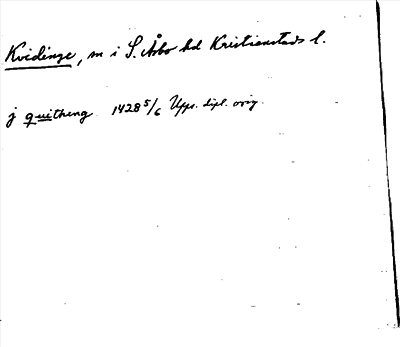 Kvidinge, sn i S. Åsbo hd Kristianstads l.
j quitheng 1428 5/6 Upps. dipl. orig.